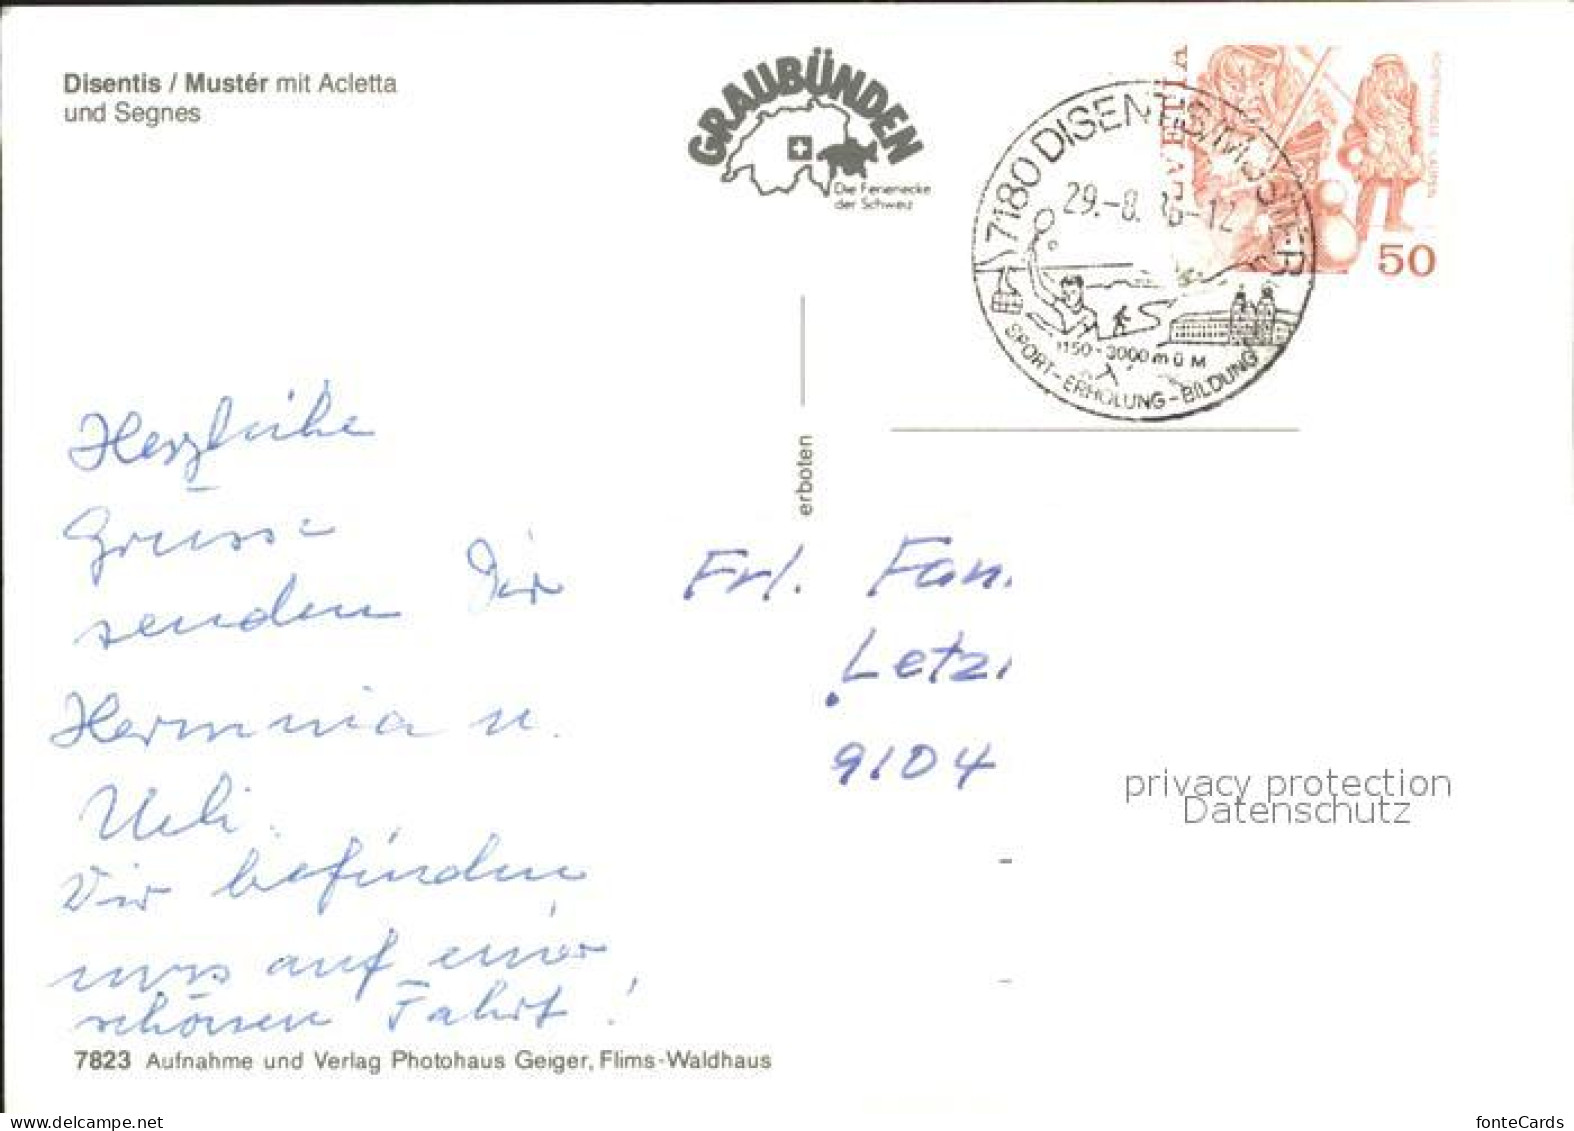 Disentis / Mustér mit Acletta
und Segnes
GRAUBÜNDEN
Die Ferienecke
der Schweiz
7180 DISENTIS/MUSTER
29.-8. 86-12
1150-3000 m ü M
SPORT-ERHOLUNG-BILDUNG
HELVETIA
50
erboten
Herzliche
Grüsse
senden Dir
Herminia u.
Ueli.
Wir befinden
uns auf einer
schönen Fahrt!
Frl. Fan.
Letzi
9104
privacy protection
Datenschutz
7823 Aufnahme und Verlag Photohaus Geiger, Flims-Waldhaus
www.delcampe.net
fonteCards